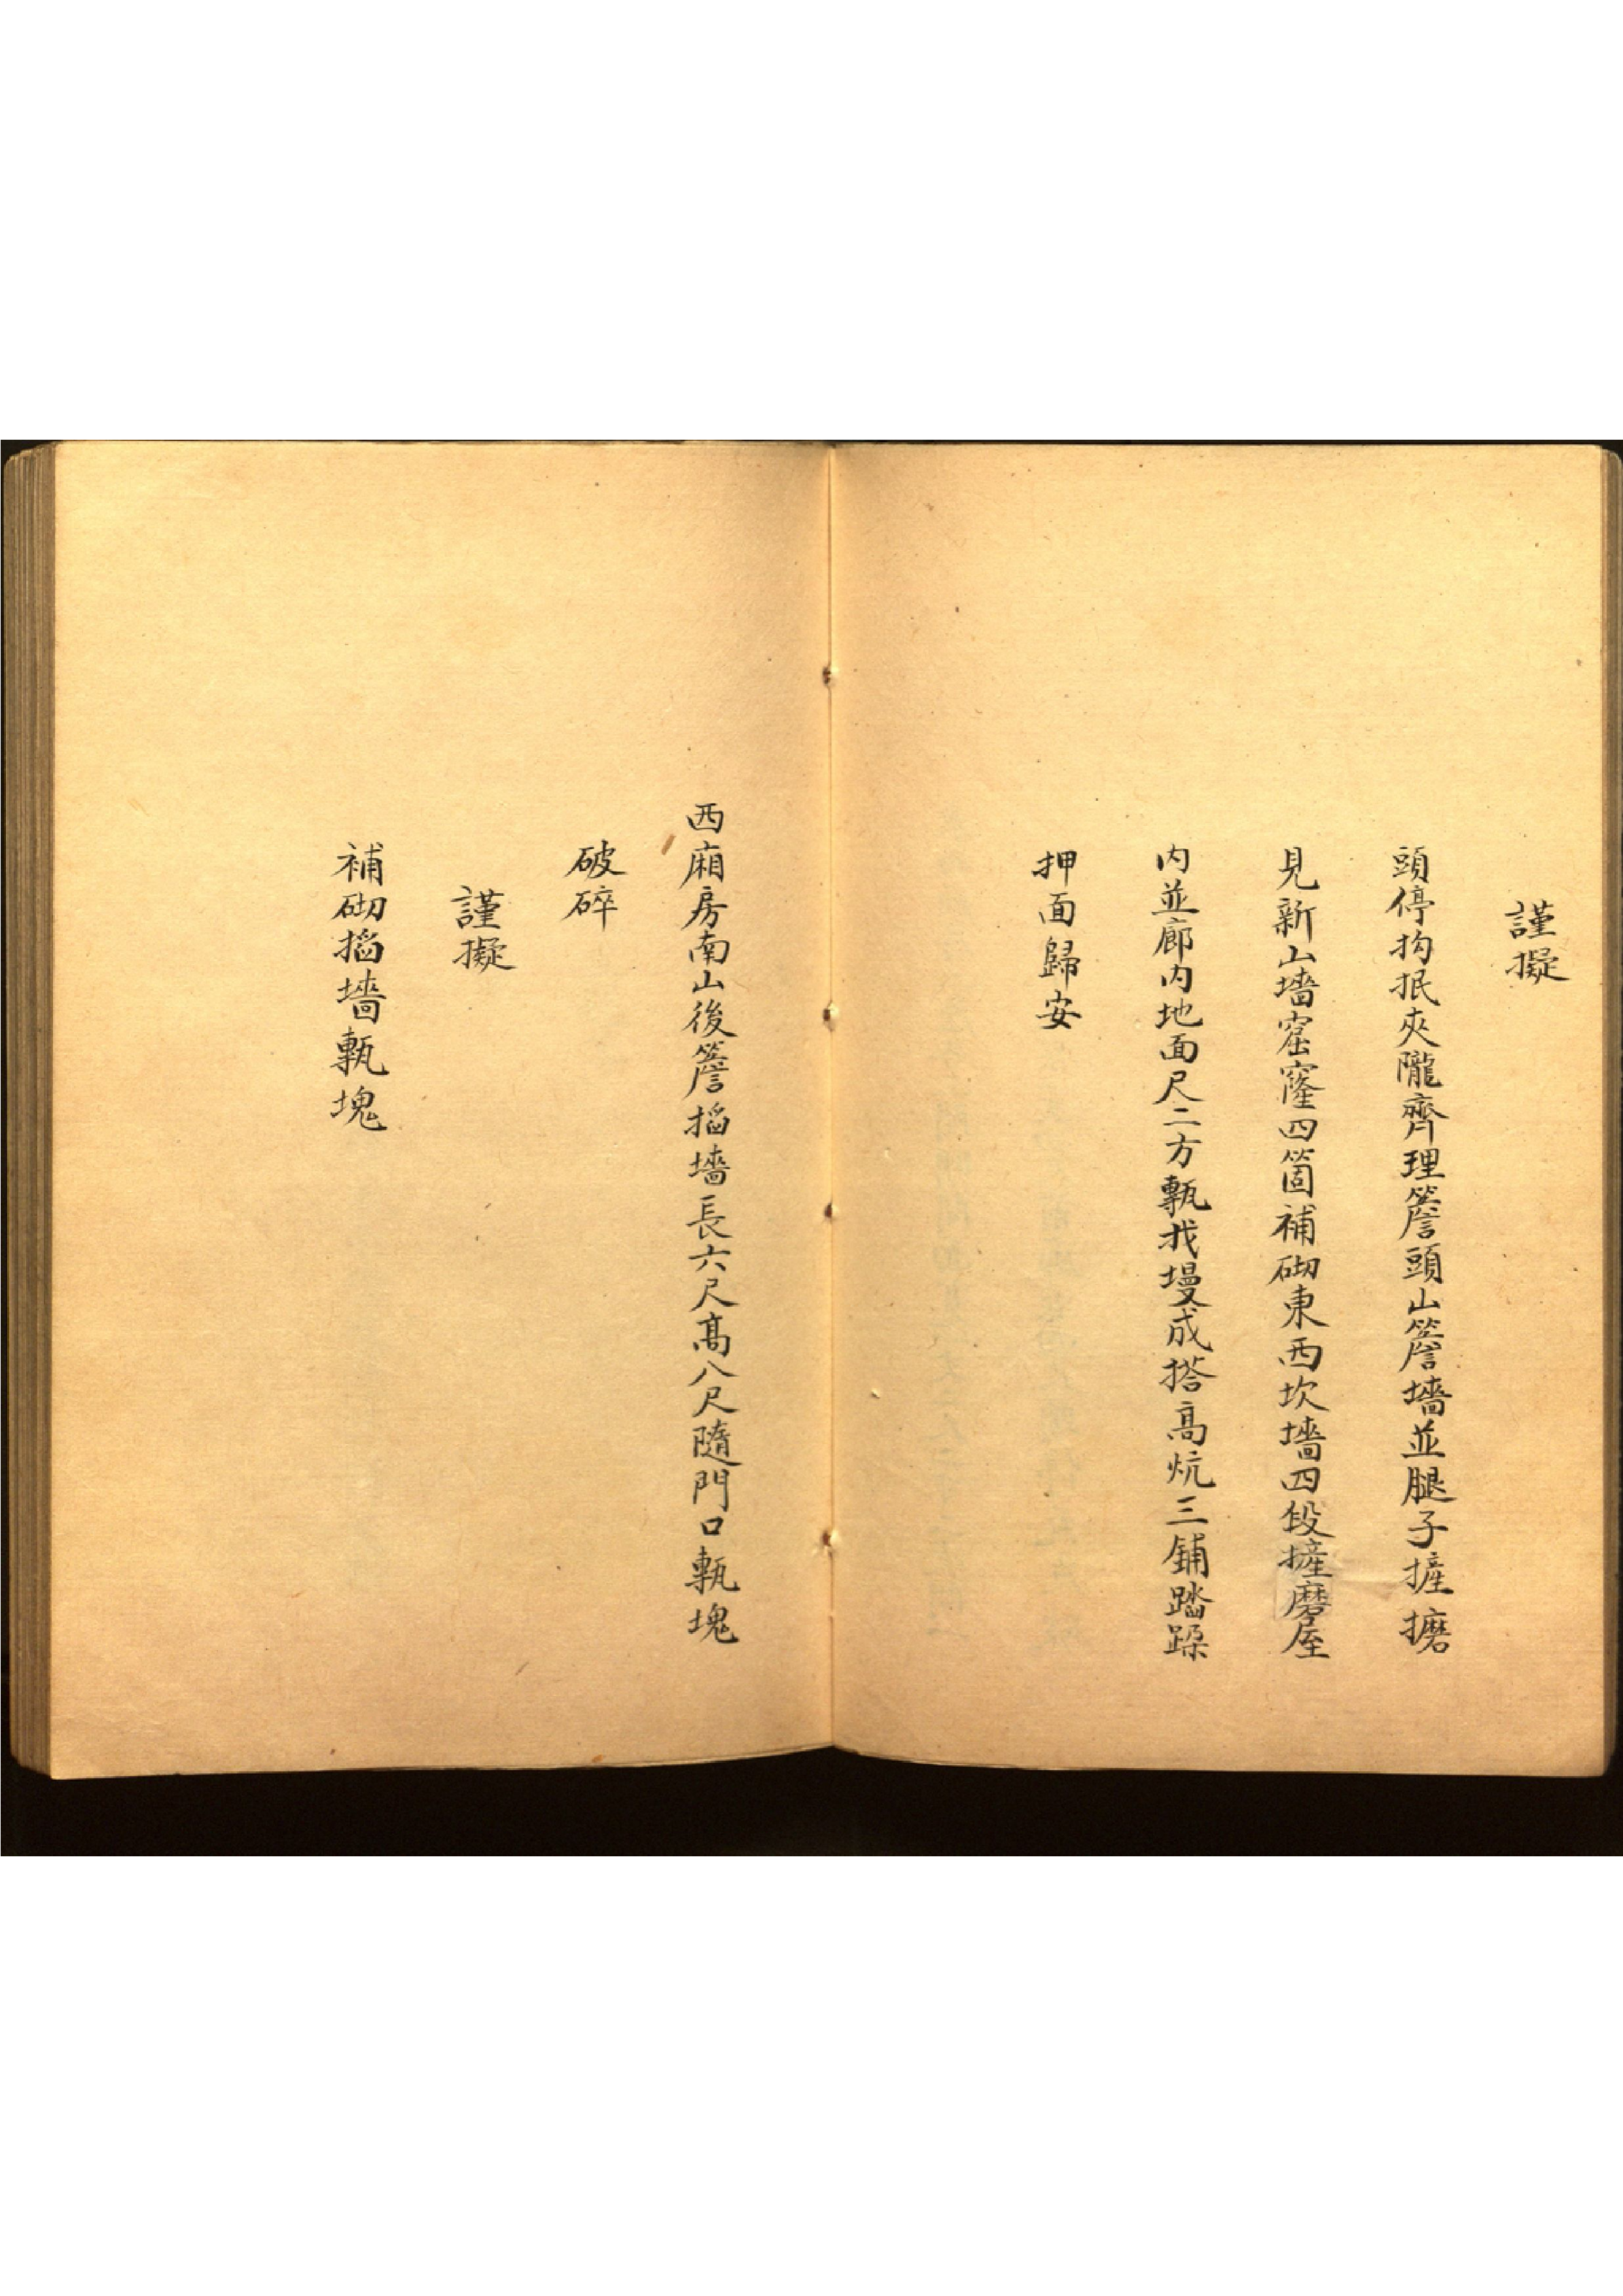 謹擬
頭停抅抿夾隴齊理簷頭山簷墻並腿子摌𢷾
見新山墻窟窿四箇補砌東西坎墻四段摌磨屋
内並廊内地面尺二方甎找墁成搭高炕三鋪踏跺
押面歸安
西廂房南山後簷搯墻長六尺髙八尺隨門口甎塊
破碎
謹擬
補砌搯墻甎塊